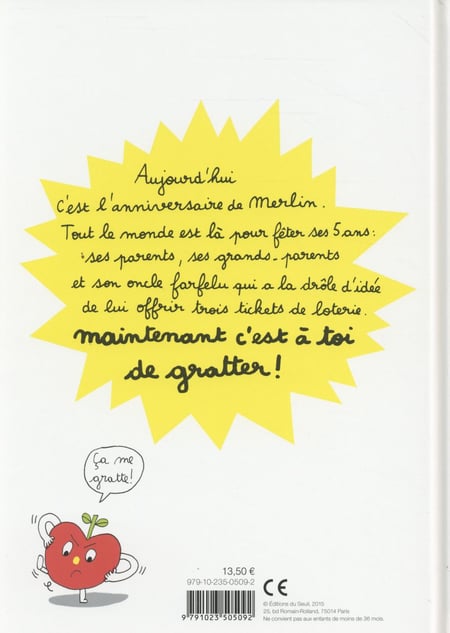 Aujourd'hui
c'est l'anniversaire de Merlin.
Tout le monde est là pour fêter ses 5 ans :
ses parents, ses grands-parents
et son oncle farfelu qui a la drôle d'idée
de lui offrir trois tickets de loterie.
maintenant c'est à toi
de gratter !
Ça me
gratte !
13,50 €
979-10-235-0509-2
CE
9 791023 505092
© Éditions du Seuil, 2015
25, bd Romain-Rolland, 75014 Paris
Ne convient pas aux enfants de moins de 36 mois.